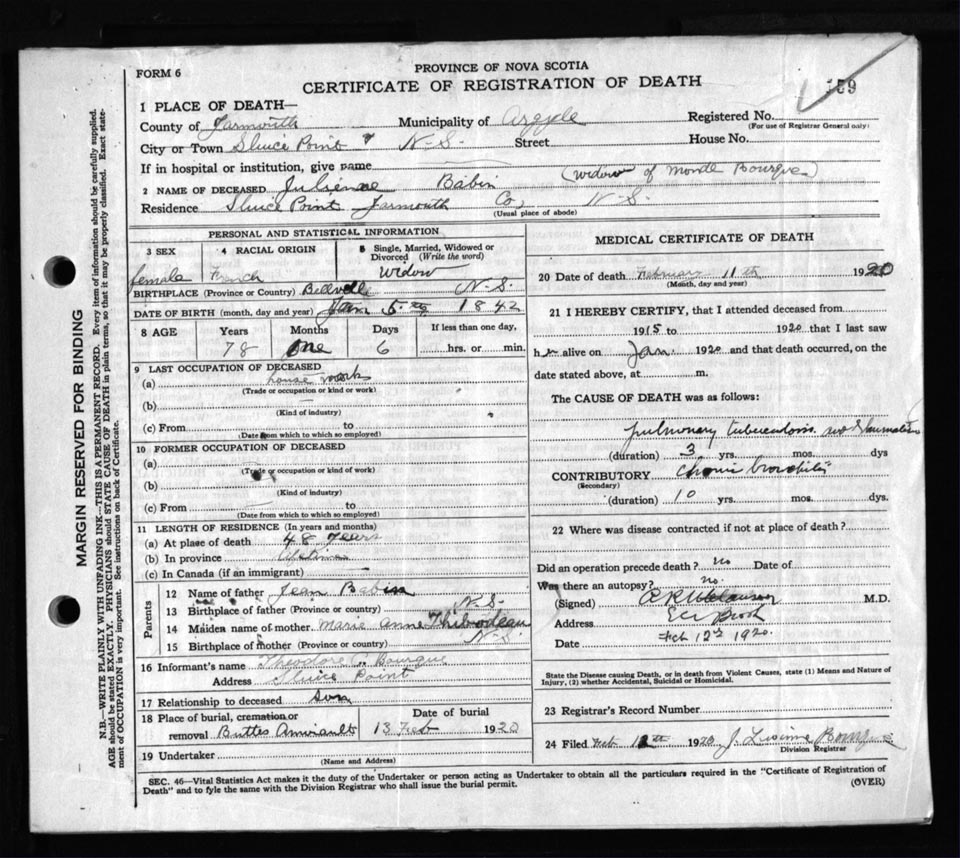 FORM 6
PROVINCE OF NOVA SCOTIA
CERTIFICATE OF REGISTRATION OF DEATH
159
1 PLACE OF DEATH—
County of Yarmouth Municipality of Argyle Registered No.
(For use of Registrar General only)
City or Town Sluice Point N.S. Street House No.
If in hospital or institution, give name
2 NAME OF DECEASED Julienne Babin (widow of Monde Bourque)
Residence Sluice Point Yarmouth Co, N.S.
(Usual place of abode)
PERSONAL AND STATISTICAL INFORMATION
3 SEX 4 RACIAL ORIGIN 5 Single, Married, Widowed or Divorced (Write the word)
female French Widow
BIRTHPLACE (Province or Country) Bellville N.S.
DATE OF BIRTH (month, day and year) Jan 5th 1842
8 AGE Years Months Days If less than one day,
78 One 6 hrs. or min.
9 LAST OCCUPATION OF DECEASED
(a) house work
(Trade or occupation or kind or work)
(b)
(Kind of industry)
(c) From to
(Date from which to which so employed)
10 FORMER OCCUPATION OF DECEASED
(a)
(Trade or occupation or kind of work)
(b)
(Kind of industry)
(c) From to
(Date from which to which so employed)
11 LENGTH OF RESIDENCE (In years and months)
(a) At place of death 48 years
(b) In province
(c) In Canada (if an immigrant)
Parents
12 Name of father Jean Babin
13 Birthplace of father (Province or country) N.S.
14 Maiden name of mother Marie Anne Thibodeau
15 Birthplace of mother (Province or country) N.S.
16 Informant's name Theodore C. Bourque
Address Sluice Point
17 Relationship to deceased Son
18 Place of burial, cremation or Date of burial
removal Buttes Amirault 13 Feb 1920
19 Undertaker
(Name and Address)
MEDICAL CERTIFICATE OF DEATH
20 Date of death February 11th 1920
(Month, day and year)
21 I HEREBY CERTIFY, that I attended deceased from
1915 to 1920 that I last saw
h alive on Jan 1920 and that death occurred, on the
date stated above, at m.
The CAUSE OF DEATH was as follows:
pulmonary tuberculosis
(duration) 3 yrs. mos. dys
CONTRIBUTORY chronic bronchitis
(Secondary)
(duration) 10 yrs. mos. dys.
22 Where was disease contracted if not at place of death?
Did an operation precede death? no Date of
Was there an autopsy? no.
(Signed) M.D.
Address Eel Brook
Date Feb 12th 1920.
State the Disease causing Death, or in death from Violent Causes, state (1) Means and Nature of Injury, (2) whether Accidental, Suicidal or Homicidal.
23 Registrar's Record Number
24 Filed Feb 12th 1920 J. Bourque
Division Registrar
SEC. 46—Vital Statistics Act makes it the duty of the Undertaker or person acting as Undertaker to obtain all the particulars required in the "Certificate of Registration of
Death" and to fyle the same with the Division Registrar who shall issue the burial permit.
(OVER)
MARGIN RESERVED FOR BINDING
N.B.—WRITE PLAINLY WITH UNFADING INK—THIS IS A PERMANENT RECORD. Every item of information should be carefully supplied.
AGE should be stated EXACTLY. PHYSICIANS should STATE CAUSE OF DEATH in plain terms, so that it may be properly classified. Exact state-
ment of OCCUPATION is very important. See instructions on back of Certificate.